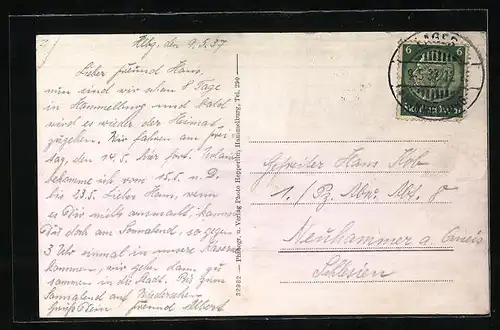 Hbg. den 9.5.37
Lieber Freund Hans,
nun sind wir schon 8 Tage
in Hammelburg und bald
wird es wieder der Heimat
zugehen. Wir fahren am Frei
tag, den 14.5. hier fort. Urlaub
bekomme ich vom 15.5. n. D.
bis 23.5. Lieber Hans, wenn
es Dir nichts ausmacht, kannst
Du doch am Sonnabend, so gegen
3 Uhr einmal in unsere Kaserne
kommen, wir gehen dann zu
sammen in die Stadt. Bis zum
Sonnabend auf Wiedersehen
Grüßt Dein Freund Albert
32982 – Photogr. u. Verlag Photo Hammelburg, Tel. 290
6 6
LAGER
9.5.37
Gefreiter Hans
1./Pz. Abw. Abt. 8
Neuhammer a. Queis
Schlesien